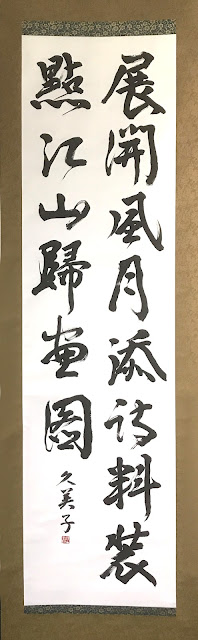 展開風月添詩料装
點江山歸畫圖
久美子